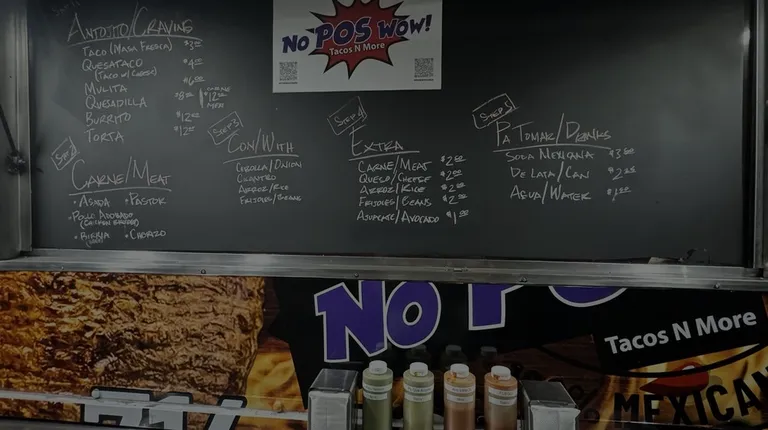 Antojito/Craving
Taco (Masa Fresca) $3.00
Quesataco $4.00
(Taco w/ Cheese)
Mulita $6.00
Quesadilla $8.00 $12.00
Burrito $12.00
Torta $12.00
Step 2
Carne/Meat
• Asada • Pastor
• Pollo Adobado
• Birria • Chorizo
Step 3
Con/With
Cebolla/Onion
Cilantro
Arroz/Rice
Frijoles/Beans
Step 4
Extra
Carne/Meat $2.00
Queso/Cheese $2.00
Arroz/Rice $2.00
Frijoles/Beans $2.00
Aguacate/Avocado $1.00
Step 5
Pa Tomar/Drinks
Soda Mexicana $3.50
De Lata/Can $2.00
Agua/Water $1.00
No POS WOW!
Tacos N More
NO PO
Tacos N More
MEXICAN